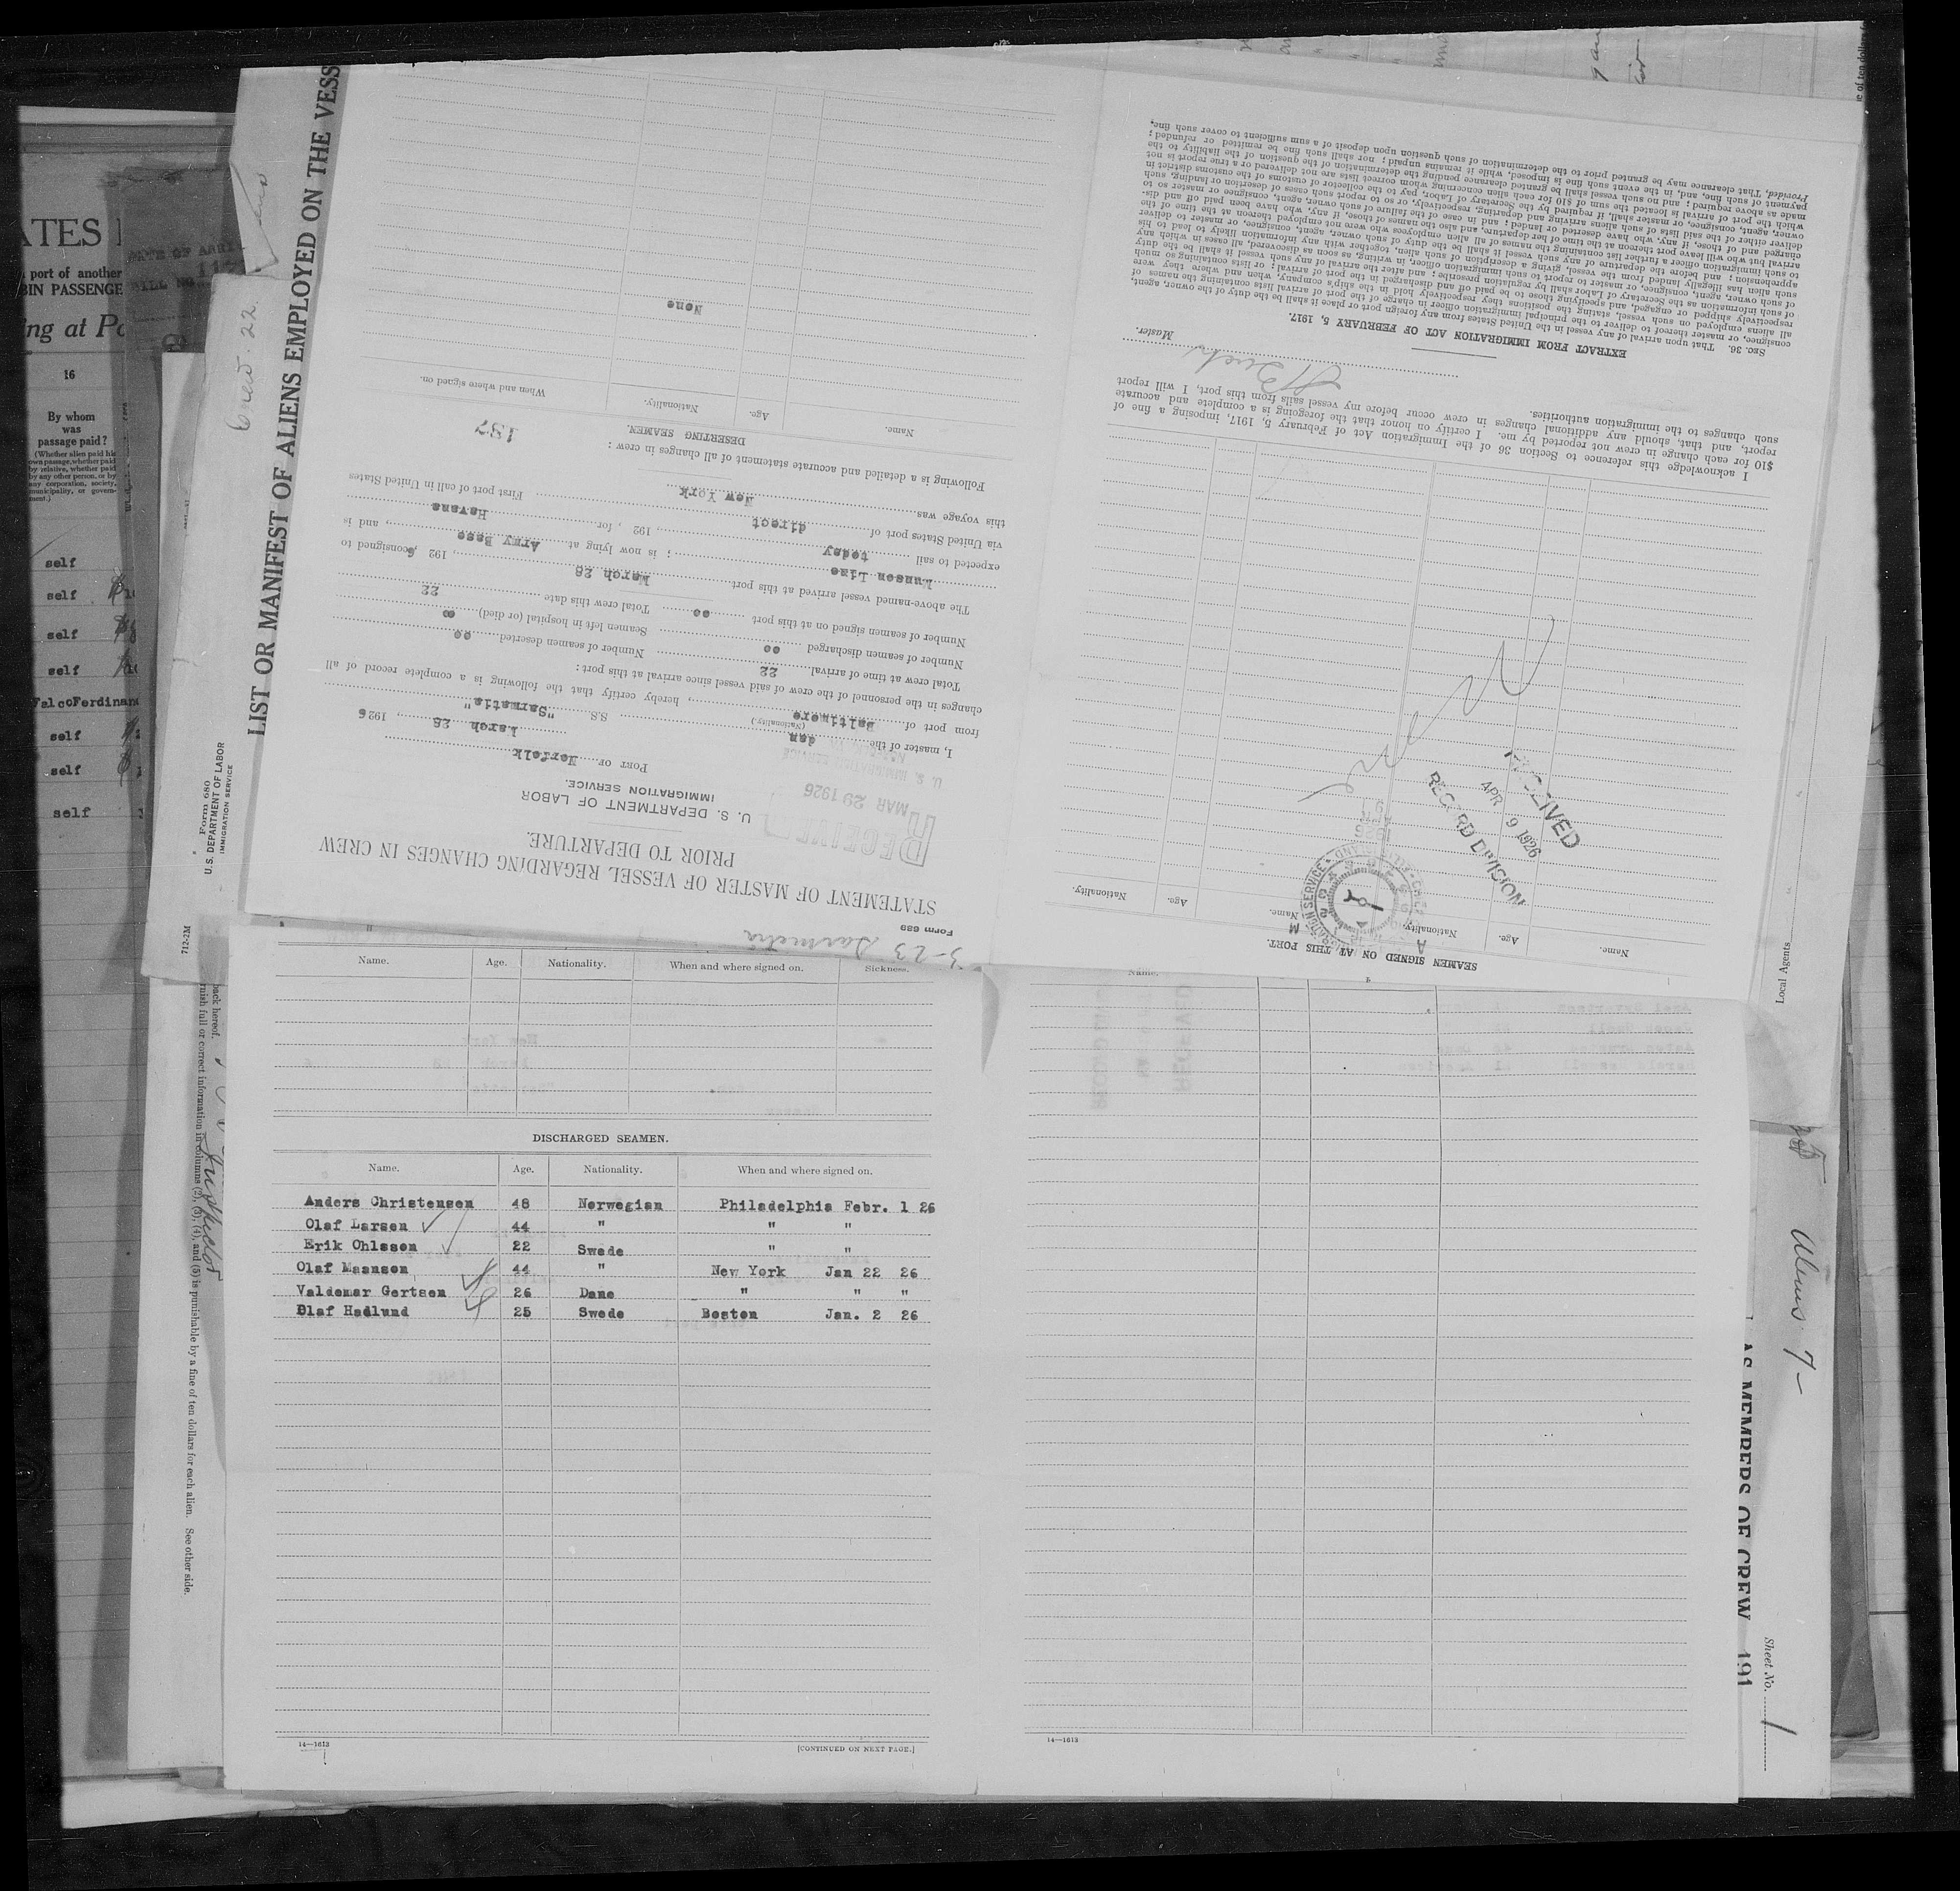 STATEMENT OF MASTER OF VESSEL REGARDING CHANGES IN CREW
PRIOR TO DEPARTURE.
U. S. DEPARTMENT OF LABOR
IMMIGRATION SERVICE.
MAR 29 1926
PORT OF Norfolk
March 28, 1926
I, master of the dan S.S. "Sarmatia"
(Nationality)
from port of Baltimore, hereby certify that the following is a complete record of all
changes in the personnel of the crew of said vessel since arrival at this port:
Total crew at time of arrival 22 Number of seamen deserted oo
Number of seamen discharged oo Seamen left in hospital (or died) oo
Number of seamen signed on at this port oo Total crew this date 22
The above-named vessel arrived at this port March 28, 1926, consigned to
Munson Line; is now lying at Army Base, and is
expected to sail today, 192 , for Havana
via United States port of direct First port of call in United States
this voyage was New York
Following is a detailed and accurate statement of all changes in crew:
187
DESERTING SEAMEN.
Name. Age. Nationality. When and where signed on.
None
Form 689
3-23 Sarmatia
SEAMEN SIGNED ON AT THIS PORT.
Name. Age. Nationality. Name. Age. Nationality.
RECEIVED
APR 9 1926
RECORD DIVISION
I acknowledge this reference to Section 36 of the Immigration Act of February 5, 1917, imposing a fine of
$10 for each change in crew not reported by me. I certify on honor that the foregoing is a complete and accurate
report, and that, should any additional changes in crew occur before my vessel sails from this port, I will report
such changes to the immigration authorities.
Master.
EXTRACT FROM IMMIGRATION ACT OF FEBRUARY 5, 1917.
SEC. 36. That upon arrival of any vessel in the United States from any foreign port or place it shall be the duty of the owner, agent,
consignee, or master thereof to deliver to the principal immigration officer in charge of the port of arrival lists containing the names of
all aliens employed on such vessel, stating the positions they respectively hold in the ship's company, when and where they were
respectively shipped or engaged, and specifying those to be paid off and discharged in the port of arrival; or lists containing so much
of such information as the Secretary of Labor shall by regulation prescribe; and after the arrival of any such vessel it shall be the duty
of such owner, agent, consignee, or master to report to such immigration officer, in writing, as soon as discovered, all cases in which any
such alien has illegally landed from the vessel, giving a description of such alien, together with any information likely to lead to his
apprehension; and before the departure of any such vessel it shall be the duty of such owner, agent, consignee, or master to deliver
to such immigration officer a further list containing the names of all alien employees who were not employed thereon at the time of the
arrival but who will leave port thereon at the time of her departure, and also the names of those, if any, who have been paid off and dis-
charged and of those, if any, who have deserted or landed; and in case of the failure of such owner, agent, consignee or master so to
deliver either of the said lists of such aliens arriving and departing, respectively, or so to report such cases of desertion or landing, such
owner, agent, consignee, or master shall, if required by the Secretary of Labor, pay to the collector of customs of the customs district in
which the port of arrival is located the sum of $10 for each alien concerning whom correct lists are not delivered or a true report is not
made as above required; and no such vessel shall be granted clearance pending the determination of the question of the liability to the
payment of such fine, and, in the event such fine is imposed, while it remains unpaid; nor shall such fine be remitted or refunded:
Provided, That clearance may be granted prior to the determination of such question upon deposit of a sum sufficient to cover such fine.
Name. Age. Nationality. When and where signed on. Sickness.
DISCHARGED SEAMEN.
Name. Age. Nationality. When and where signed on.
Anders Christensen 48 Norwegian Philadelphia Febr. 1 26
Olaf Larsen 44 " " "
Erik Ohlsson 22 Swede " "
Olaf Maansen 44 " New York Jan 22 26
Valdemar Gertsen 26 Dane " " "
Olaf Hedlund 25 Swede Boston Jan. 2 26
14—1613
[CONTINUED ON NEXT PAGE.]
14—1613
LIST OR MANIFEST OF ALIENS EMPLOYED ON THE VESS
Crew. 22.
Form 680
U.S. DEPARTMENT OF LABOR
IMMIGRATION SERVICE
712-2M
back hereof.
nish full or correct information in columns (2), (3), (4), and (5) is punishable by a fine of ten dollars for each alien. See other side.
Inspector
ATES
port of another
BIN PASSENGE
ing at Po
16
By whom
was
passage paid?
(Whether alien paid his
own passage, whether paid
by relative, whether paid
by any other person, or by
any corporation, society,
municipality, or govern-
ment.)
self
self
self
self
FalcoFerdinan
self
self
self
Local Agents
Aliens 7-
AS MEMBERS OF CREW 191
Sheet No. 1